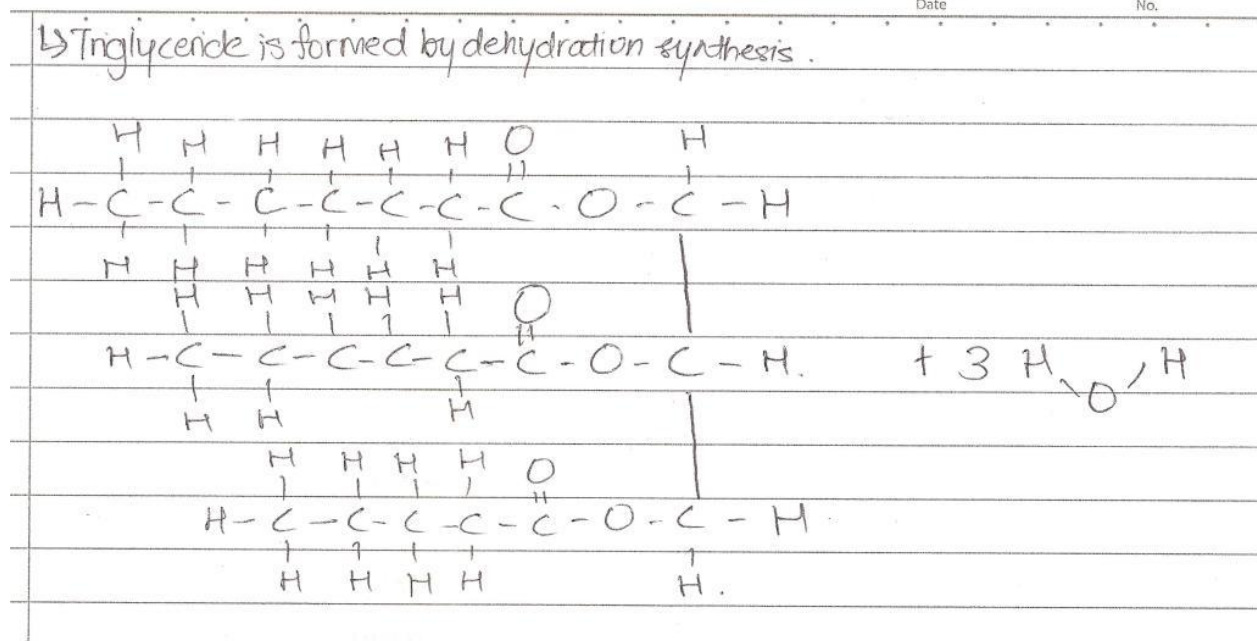 Date No.
↳ Triglyceride is formed by dehydration synthesis.
H H H H H H O H
H-C-C-C-C-C-C-C-O-C-H
H H H H H H
H H H H H O
H-C-C-C-C-C-C-O-C-H. + 3 H O H
H H H
H H H H O
H-C-C-C-C-C-O-C-H
H H H H H.